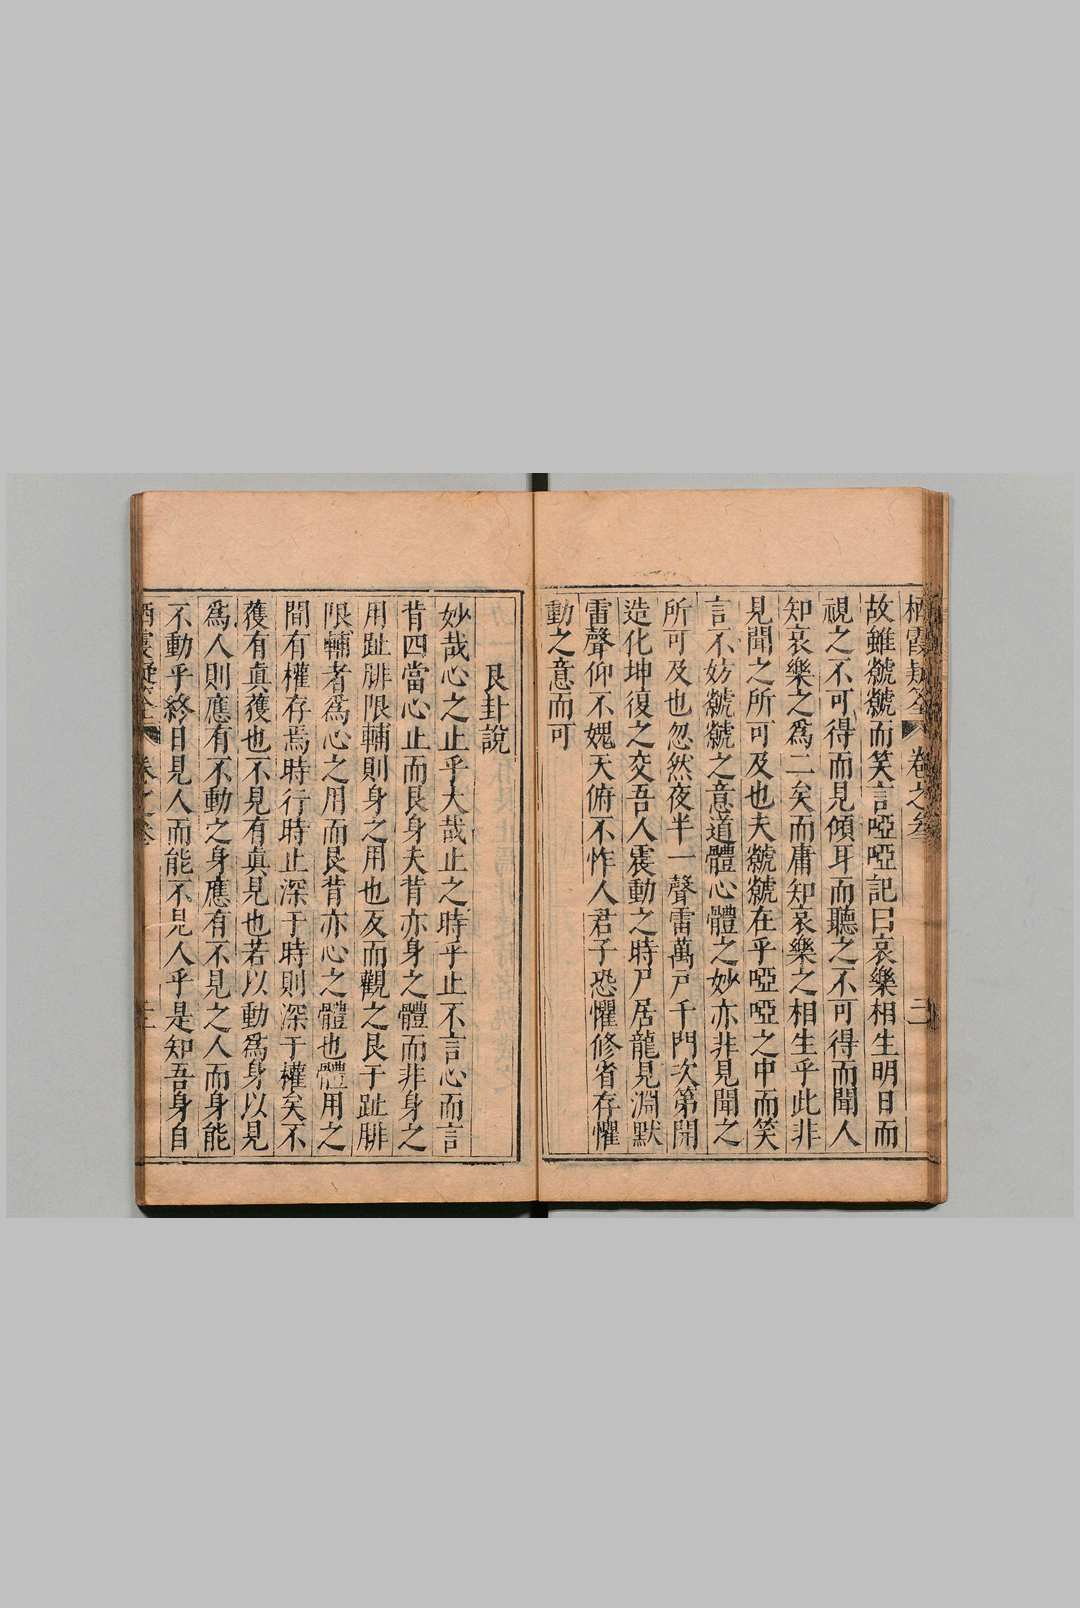 栖霞疑筌 卷之叁 二
故雖虩虩而笑言啞啞記曰哀樂相生明目而
視之不可得而見傾耳而聽之不可得而聞人
知哀樂之爲二矣而庸知哀樂之相生乎此非
見聞之所可及也夫虩虩在乎啞啞之中而笑
言不妨虩虩之意道體心體之妙亦非見聞之
所可及也忽然夜半一聲雷萬戸千門次第開
造化坤復之交吾人震動之時尸居龍見淵默
雷聲仰不媿天俯不怍人君子恐懼修省存懼
動之意而可
艮卦說
妙哉心之止乎大哉止之時乎止不言心而言
背四當心止而艮身夫背亦身之體而非身之
用趾腓限輔則身之用也及而觀之艮于趾腓
限輔者爲心之用而艮背亦心之體也體用之
間有權存焉時行時止深于時則深于權矣不
獲有真獲也不見有真見也若以動爲身以見
爲人則應有不動之身應有不見之人而身能
不動乎終日見人而能不見人乎是知吾身自
栖霞疑筌 卷之叁 三